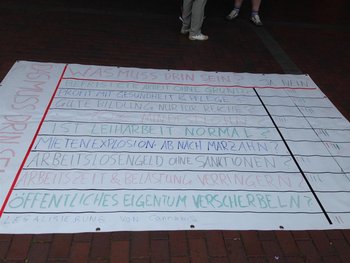 DAS MUSS DRIN SEIN
WAS MUSS DRIN SEIN? JA NEIN
BEFRISTETE ARBEIT OHNE GRUND?
PROFIT MIT GESUNDHEIT & PFLEGE
GUTE BILDUNG NUR FÜR REICHE?
IST LEIHARBEIT NORMAL?
MIETENEXPLOSION AB NACH MARZAHN?
ARBEITSLOSENGELD OHNE SANKTIONEN?
ARBEITSZEIT & BELASTUNG VERRINGERN?
ÖFFENTLICHES EIGENTUM VERSCHERBELN?
LEGALISIERUNG VON CANNABIS